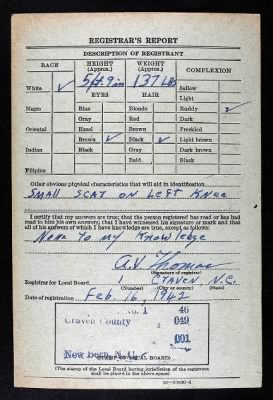 REGISTRAR'S REPORT
DESCRIPTION OF REGISTRANT
RACE HEIGHT (Approx.) WEIGHT (Approx.) COMPLEXION
White ✓ 5 ft. 9 in 137 Lbs Sallow
EYES HAIR Light
Negro Blue Blonde Ruddy ✓
Gray Red Dark
Oriental Hazel Brown Freckled
Brown ✓ Black ✓ Light brown
Indian Black Gray Dark brown
Bald Black
Filipino
Other obvious physical characteristics that will aid in identification
SMALL SCAT ON LEFT KNEE
I certify that my answers are true; that the person registered has read or has had
read to him his own answers; that I have witnessed his signature or mark and that
all of his answers of which I have knowledge are true, except as follows:
None to my knowledge
A.V. Thomas
(Signature of registrar)
Registrar for Local Board CRAVEN, N.C.
(Number) (City or county) (State)
Date of registration Feb. 16, 1942
No. 1 46
Craven County 049
001
New Bern, N. C.
(STAMP OF LOCAL BOARD)
(The stamp of the Local Board having jurisdiction of the registrant
shall be placed in the above space.)